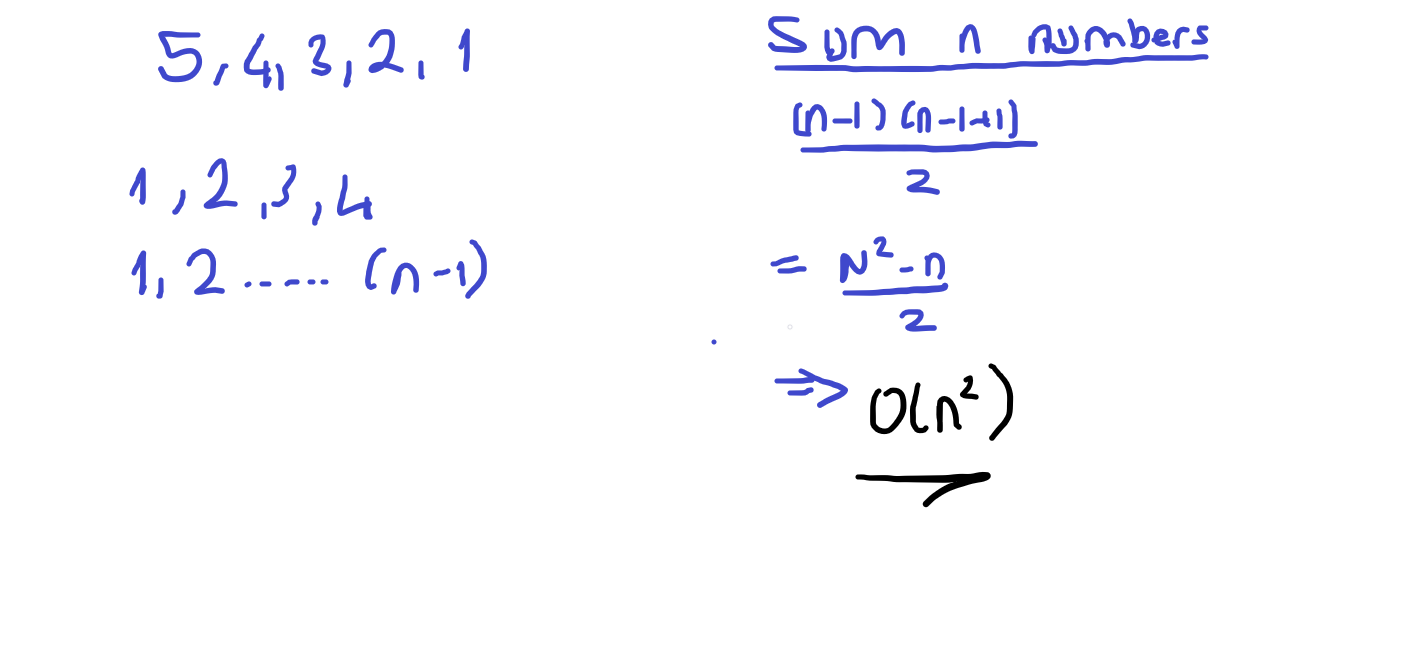 5, 4, 3, 2, 1
1, 2, 3, 4
1, 2 ...... (n-1)
Sum n numbers
(n-1) (n-1+1)
2
= N² - n
2
⇒ O(n²)